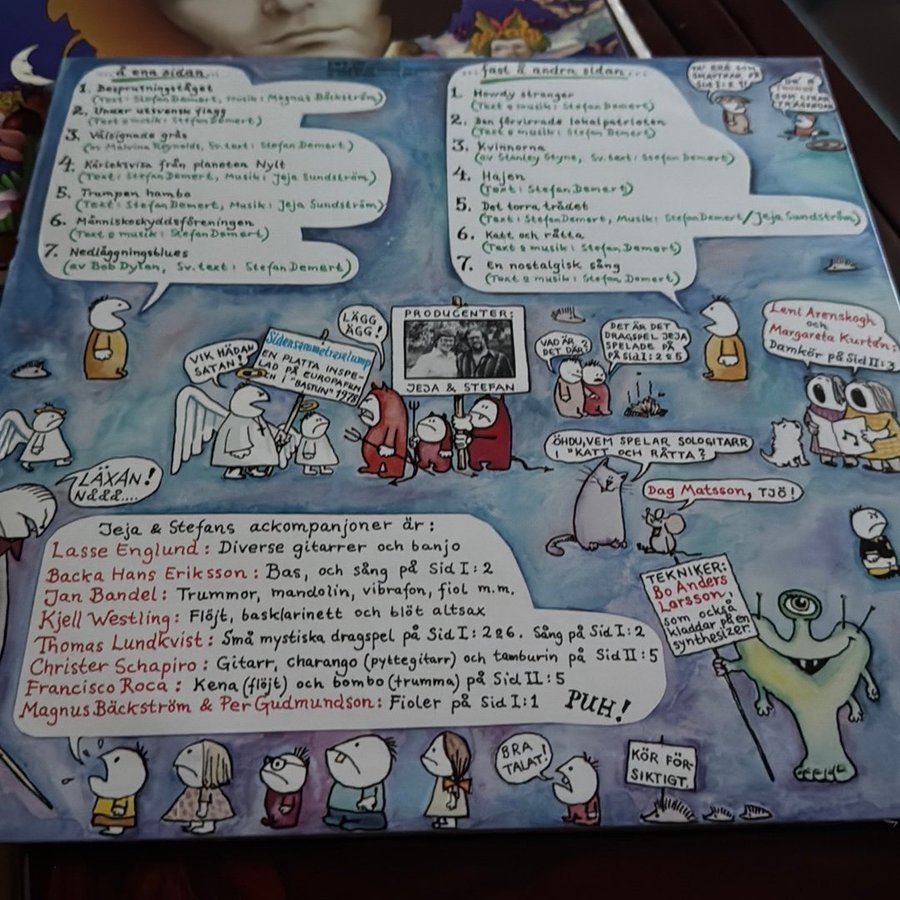 ...å ena sidan...
1. Besprutningståget
(Text: Stefan Demert, Musik: Magnus Bäckström)
2. Under utsvensk flagg
(Text & musik: Stefan Demert)
3. Välsignade gräs
(av Malvina Reynolds, Sv. text: Stefan Demert)
4. Kärleksvisa från planeten Nylt
(Text: Stefan Demert, Musik: Jeja Sundström)
5. Trumpen hambo
(Text: Stefan Demert, Musik: Jeja Sundström)
6. Människoskyddsföreningen
(Text & musik: Stefan Demert)
7. Nedläggningsblues
(av Bob Dylan, Sv. text: Stefan Demert)
...fast å andra sidan...
1. Howdy stranger
(Text & musik: Stefan Demert)
2. Den förvirrade lokalpatrioten
(Text & musik: Stefan Demert)
3. Kvinnorna
(av Stanley Styne, Sv. text: Stefan Demert)
4. Hajen
(Text: Stefan Demert)
5. Det torra trädet
(Text: Stefan Demert, Musik: Stefan Demert/Jeja Sundström)
6. Katt och råtta
(Text & musik: Stefan Demert)
7. En nostalgisk sång
(Text & musik: Stefan Demert)
SOM
SID I:2
SOM
VIK HÄDAN
SATAN!
Sidensammetresejump
EN PLATTA INSPE-
LAD PÅ EUROPAFILM
OCH I "BASTUN" 1978
LÄGG
ÄGG!
PRODUCENTER:
JEJA & STEFAN
VAD ÄR
DET DÄR?
DET ÄR DET
DRAGSPEL JEJA
SPELADE PÅ
PÅ Sid I: 2 & 5
Leni Arenskogh
och
Margareta Kurtén:
Damkör på Sid II:3
LÄXAN!
NÅÅÅ....
ÖHDU, VEM SPELAR SOLOGITARR
I "KATT OCH RÅTTA?
Dag Matsson, TJÖ!
Jeja & Stefans ackompanjoner är:
Lasse Englund: Diverse gitarrer och banjo
Backa Hans Eriksson: Bas, och sång på Sid I:2
Jan Bandel: Trummor, mandolin, vibrafon, fiol m.m.
Kjell Westling: Flöjt, basklarinett och blöt altsax
Thomas Lundkvist: Små mystiska dragspel på Sid I: 2&6. Sång på Sid I:2
Christer Schapiro: Gitarr, charango (pyttegitarr) och tamburin på Sid II:5
Francisco Roca: Kena (flöjt) och bombo (trumma) på Sid II:5
Magnus Bäckström & Per Gudmundson: Fioler på Sid I:1
PUH!
TEKNIKER:
Bo Anders
Larsson,
som också
kladdar på en
synthesizer.
BRA
TALAT!
KÖR FÖR-
SIKTIGT.